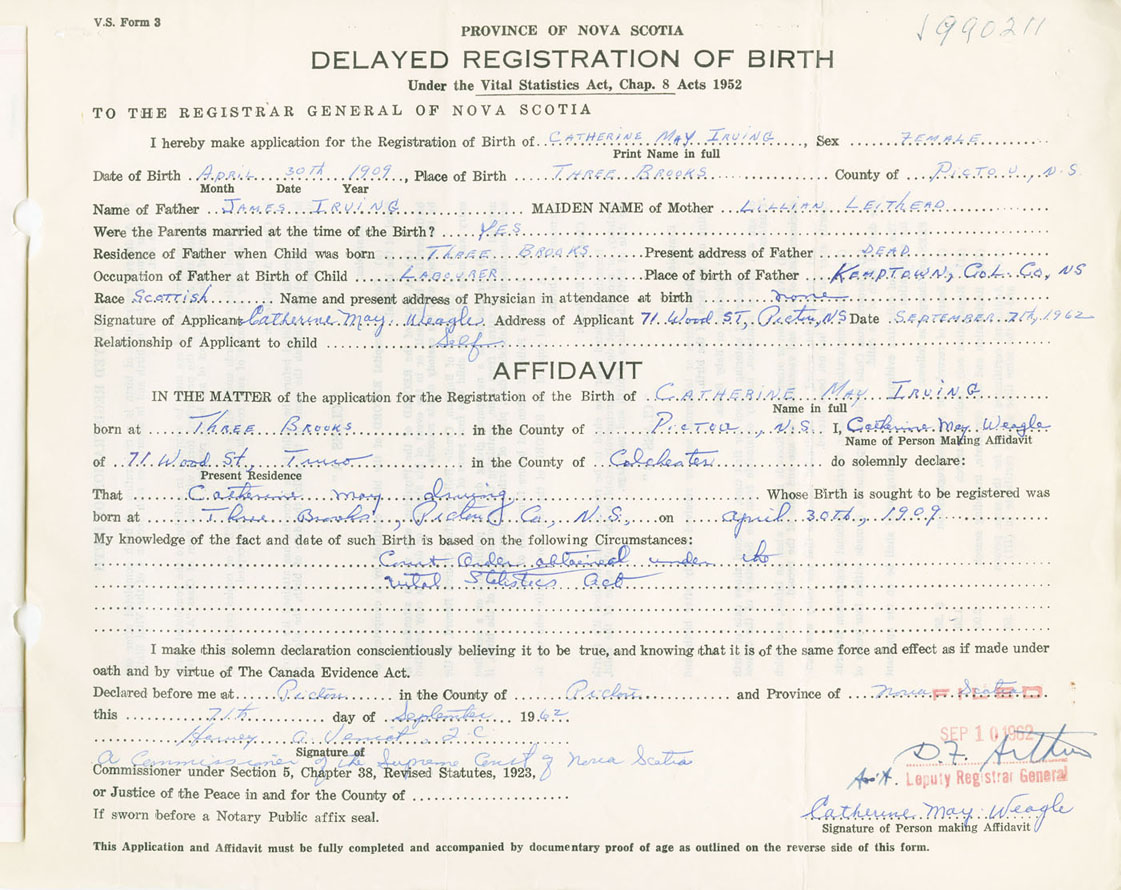 V.S. Form 3
1990211
PROVINCE OF NOVA SCOTIA
DELAYED REGISTRATION OF BIRTH
Under the Vital Statistics Act, Chap. 8 Acts 1952
TO THE REGISTRAR GENERAL OF NOVA SCOTIA
I hereby make application for the Registration of Birth of CATHERINE MAY IRVING, Sex FEMALE
Print Name in full
Date of Birth APRIL 30TH 1909, Place of Birth THREE BROOKS County of PICTOU, N.S.
Month Date Year
Name of Father JAMES IRVING MAIDEN NAME of Mother LILLIAN LEITHEAD
Were the Parents married at the time of the Birth? YES
Residence of Father when Child was born THREE BROOKS Present address of Father DEAD
Occupation of Father at Birth of Child LABOURER Place of birth of Father KEMPTOWN, COL. CO, NS
Race Scottish Name and present address of Physician in attendance at birth none
Signature of Applicant Catherine May Weagle Address of Applicant 71 Wood ST, Pictou, NS Date SEPTEMBER 7th, 1962
Relationship of Applicant to child Self
AFFIDAVIT
IN THE MATTER of the application for the Registration of the Birth of CATHERINE MAY IRVING
Name in full
born at THREE BROOKS in the County of PICTOU, N.S. I, Catherine May Weagle
Name of Person Making Affidavit
of 71 Wood St, Truro in the County of Colchester do solemnly declare:
Present Residence
That Catherine May Irving Whose Birth is sought to be registered was
born at Three Brooks, Pictou Co., N.S., on April 30th, 1909
My knowledge of the fact and date of such Birth is based on the following Circumstances:
Court Order obtained under the
Vital Statistics Act
I make this solemn declaration conscientiously believing it to be true, and knowing that it is of the same force and effect as if made under
oath and by virtue of The Canada Evidence Act.
Declared before me at Pictou in the County of Pictou and Province of Nova Scotia
this 7th day of September 1962
SEP 10 1962
Harvey A. Veniot, Q.C.
Signature of
A Commissioner of the Supreme Court of Nova Scotia
D.F. Arthur
Commissioner under Section 5, Chapter 38, Revised Statutes, 1923,
Ass't. Deputy Registrar General
or Justice of the Peace in and for the County of
Catherine May Weagle
If sworn before a Notary Public affix seal.
Signature of Person making Affidavit
This Application and Affidavit must be fully completed and accompanied by documentary proof of age as outlined on the reverse side of this form.